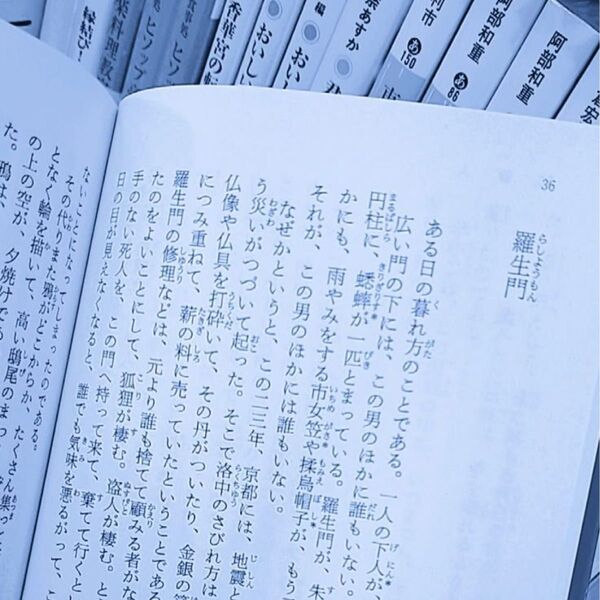 縁結び!
料理教
ヒソップ
香華宮の転
おいしい
おいし
編
あすか
市
あ
150
阿部和重
あ
86
阿部和重
36
羅生門
らしょうもん
ある日の暮れ方のことである。一人の下人が、
広い門の下には、この男のほかに誰もいない。
円柱に、蟋蟀が一匹とまっている。羅生門が、朱
かにも、雨やみをする市女笠や揉烏帽子が、もう
それが、この男のほかには誰もいない。
なぜかというと、この二三年、京都には、地震と
う災いがつづいて起った。そこで洛中のさびれ方は
仏像や仏具を打砕いて、その丹がついたり、金銀の
につみ重ねて、薪の料に売っていたということであ
羅生門の修理などは、元より誰も捨てて顧みる者がな
たのをよいことにして、狐狸が棲む。盗人が棲む。
手のない死人を、この門へ持って来て、棄てて行くと
日の目が見えなくなると、誰でも気味を悪るがって、こ
ないことになってしまったのである。
その代りまた鴉がどこからか、たくさん集って
となく輪を描いて、高い鴟尾のまっ
の上の空が、夕焼けで
た。鴉は、